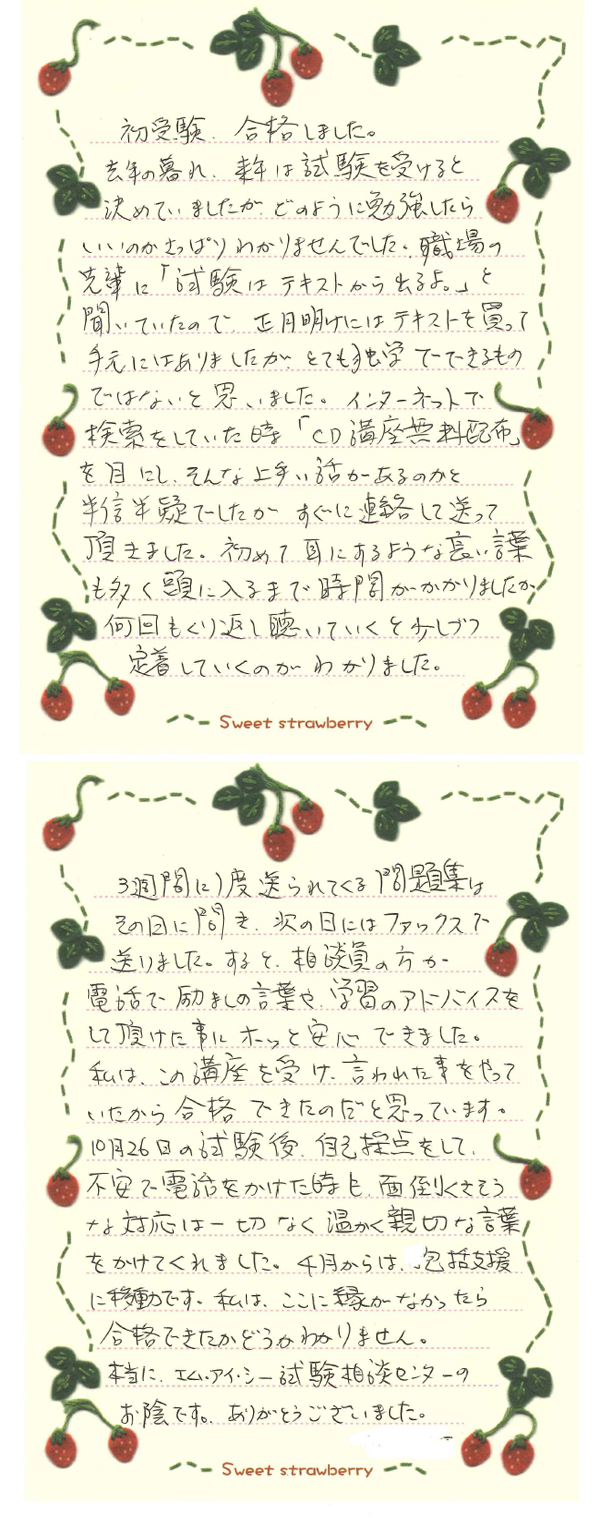 初受験、合格しました。
去年の暮れ、来年は試験を受けると
決めていましたが、どのように勉強したら
いいのかさっぱりわかりませんでした。職場の
先輩に「試験はテキストから出るよ。」と
聞いていたので、正月明けにはテキストを買って
手元にはありましたが、とても独学でできるもの
ではないと思いました。インターネットで
検索をしていた時「CD講座無料配布」
を目にし、そんな上手い話があるのかと
半信半疑でしたが すぐに連絡して送って
頂きました。初めて耳にするような長い言葉
も多く頭に入るまで時間がかかりましたが
何回もくり返し聴いていくと少しづつ
定着していくのがわかりました。
Sweet strawberry
3週間に1度送られてくる問題集は
その日に聞き、次の日にはファックスで
送りました。すると、相談員の方が
電話で励ましの言葉や、学習のアドバイスを
して頂けた事にホッと安心できました。
私は、この講座を受け、言われた事をやって
いたから合格できたのだと思っています。
10月26日の試験後、自己採点をして、
不安で電話をかけた時も、面倒くさそう
な対応は一切なく温かく親切な言葉
をかけてくれました。4月からは、包括支援
に移動です。私は、ここに縁がなかったら
合格できたかどうかわかりません。
本当に、エム・アイ・シー試験相談センターの
お陰です。ありがとうございました。
Sweet strawberry